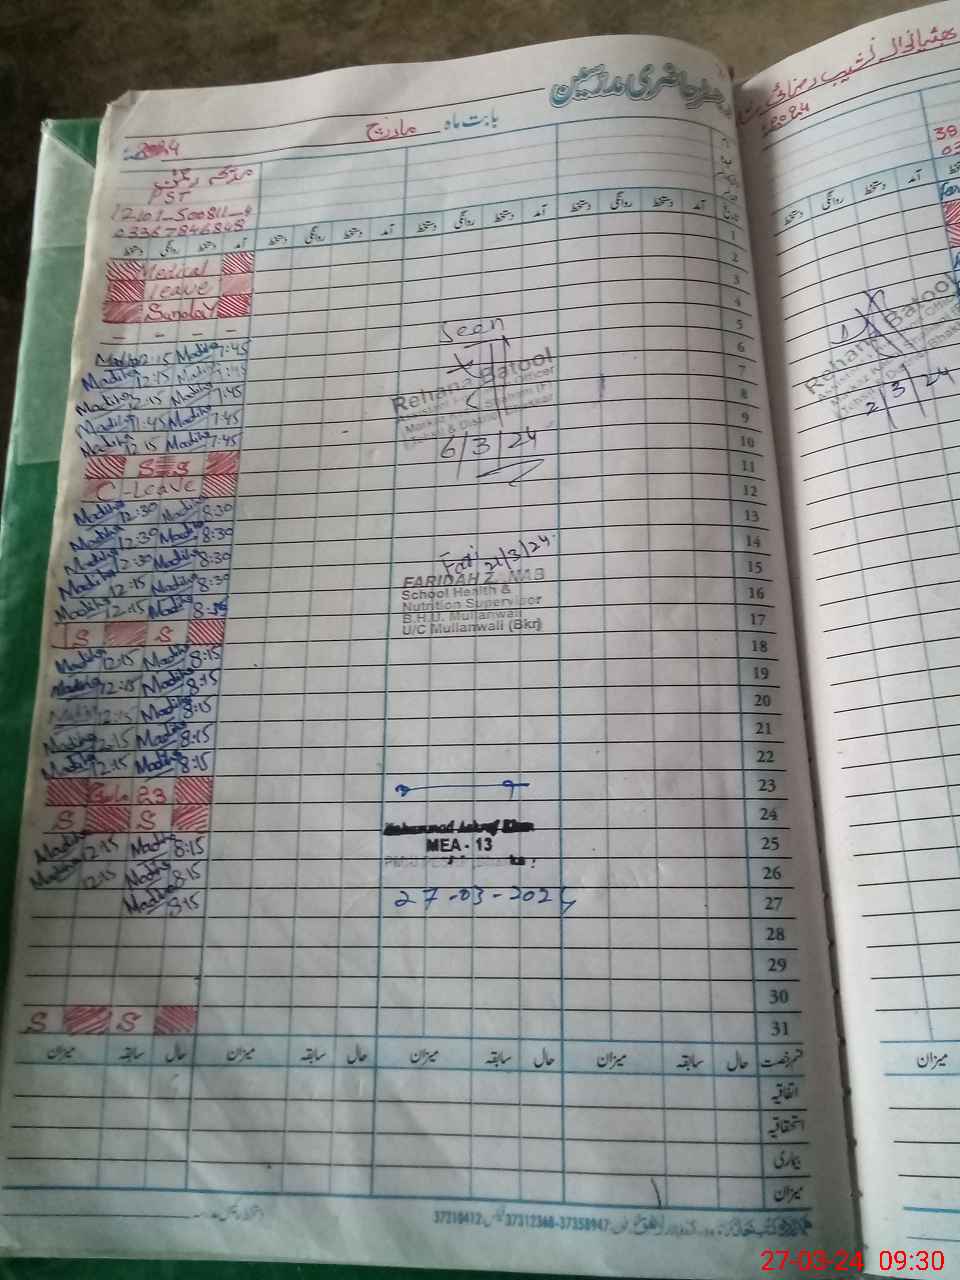 رجسٹر حاضری مدرسین
بابت ماہ مارچ 2024ء
PST
03367846848
آمد دستخط روانگی دستخط آمد دستخط روانگی دستخط آمد دستخط روانگی دستخط آمد دستخط روانگی دستخط
1 Medical
2 Leave
3 Sunday
4 - - -
5 Madiha 7:45 Madiha 12:15
6 Madiha 7:45 Madiha 12:15
7 Madiha 7:45 Madiha 12:15
8 Madiha 7:45 Madiha 11:45
9 Madiha 7:45 Madiha 12:15
10 S S
11 C-Leave
12 Madiha 8:30 Madiha 12:30
13 Madiha 8:30 Madiha 12:30
14 Madiha 8:30 Madiha 12:30
15 Madiha 8:30 Madiha 12:15
16 Madiha 8:15 Madiha 12:15
17 S S
18 Madiha 8:15 Madiha 12:15
19 Madiha 8:15 Madiha 12:15
20 Madiha 8:15 Madiha 12:15
21 Madiha 8:15 Madiha 12:15
22 Madiha 8:15 Madiha 12:15
23 23 مارچ
24 S S
25 Madiha 8:15 Madiha 12:15
26 Madiha 8:15 Madiha 12:15
27 Madiha 8:15
28
29
30
31 S S
Seen
Rehana Batool
6/3/24
21/3/24
FARIDAH Z.
School Health &
Nutrition Supervisor
B.H.U. Mullanwali
U/C Mullanwali (Bkr)
Muhammad Ashraf Khan
MEA - 13
27-03-2024
قسم رخصت حال سابقہ میزان حال سابقہ میزان حال سابقہ میزان حال سابقہ میزان
اتفاقیہ
استحقاقیہ
بیماری
میزان
37210412 37312368-37358947
2024ء
دستخط روانگی دستخط آمد
Rehana Batool
2/3/24
میزان
27-03-24 09:30